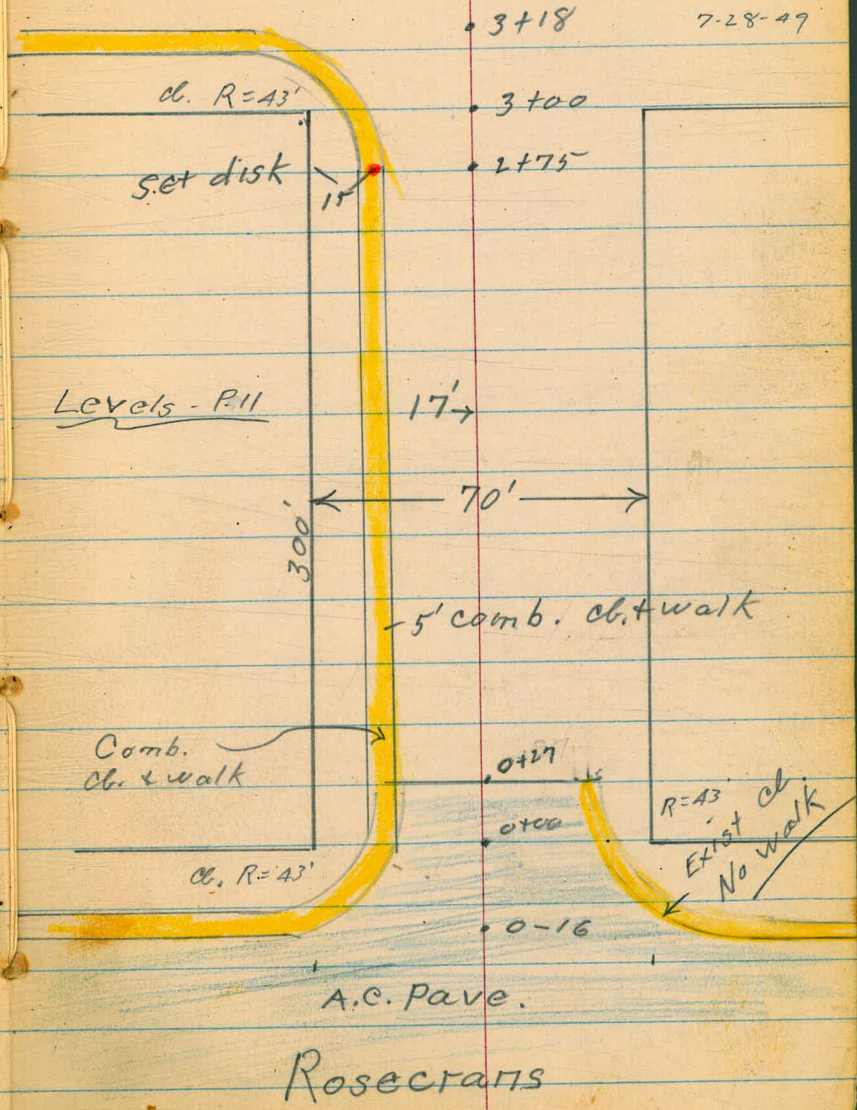 3+18
7-28-49
cb. R=43'
3+00
set disk
15
2+75
Levels - P.11
17'→
70'
300'
5' comb. cb. + walk
Comb.
cb. & walk
0+27
R=43'
0+00
Exist cb.
No walk
cb. R=43'
0-16
A.C. Pave.
Rosecrans